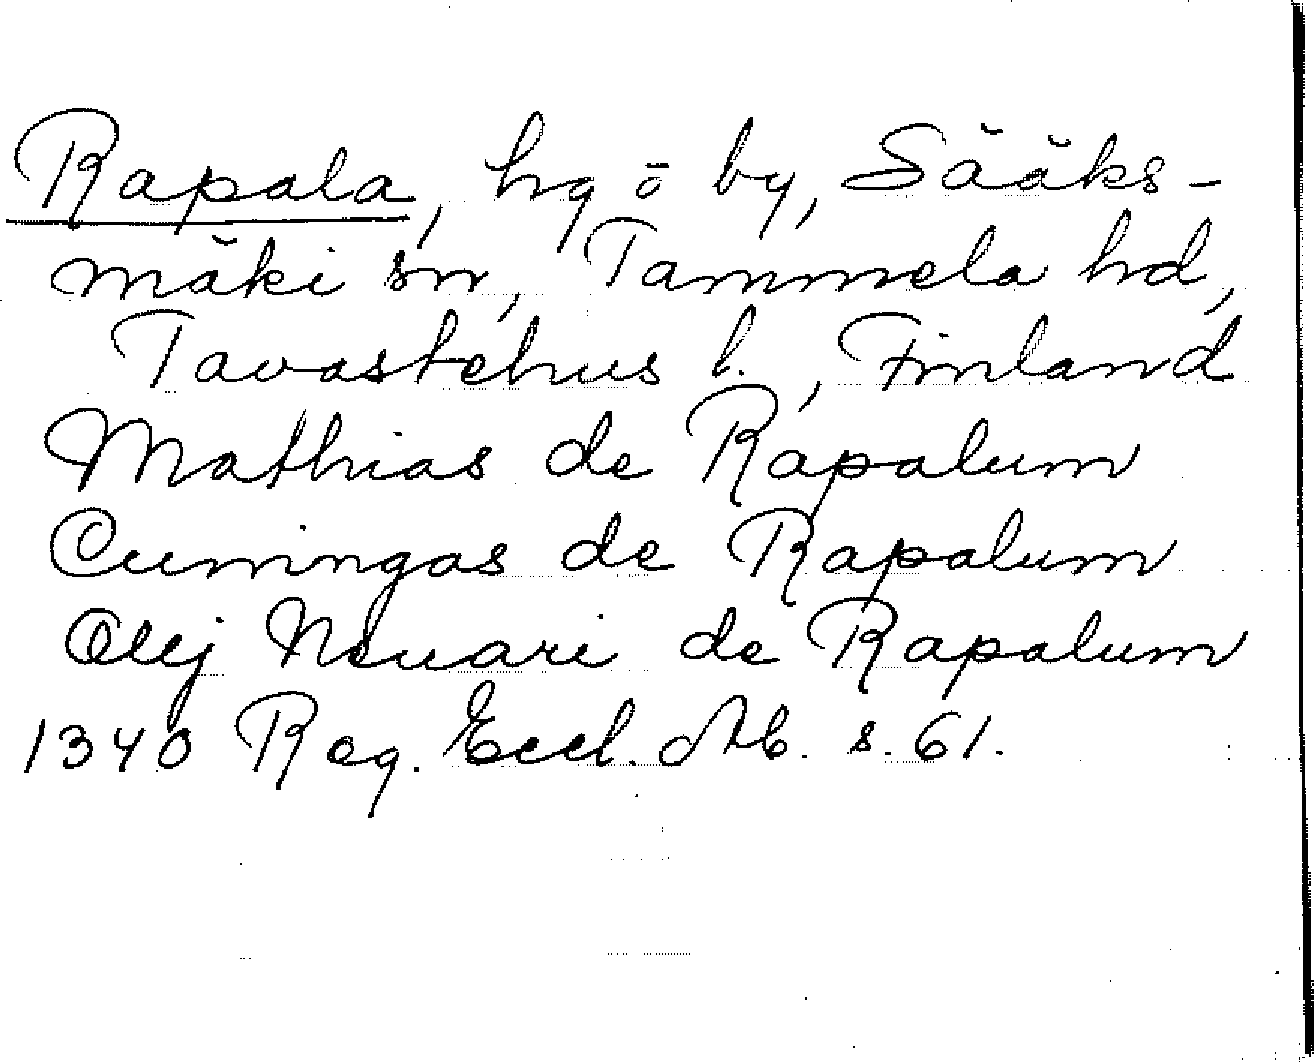 Rapala, hg ō by, Sääks-
mäki sn, Tammela hd,
Tavastehus l., Finland
Mathias de Rapalum
Cuningas de Rapalum
Olej Neuari de Rapalum
1340 Reg. Eccl. Ab. s. 61.